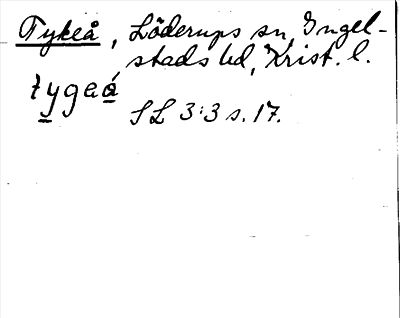 Tykeå, Löderups sn, Ingel-
stads hd, Krist. l.
tygeá
SL 3:3 s. 17.